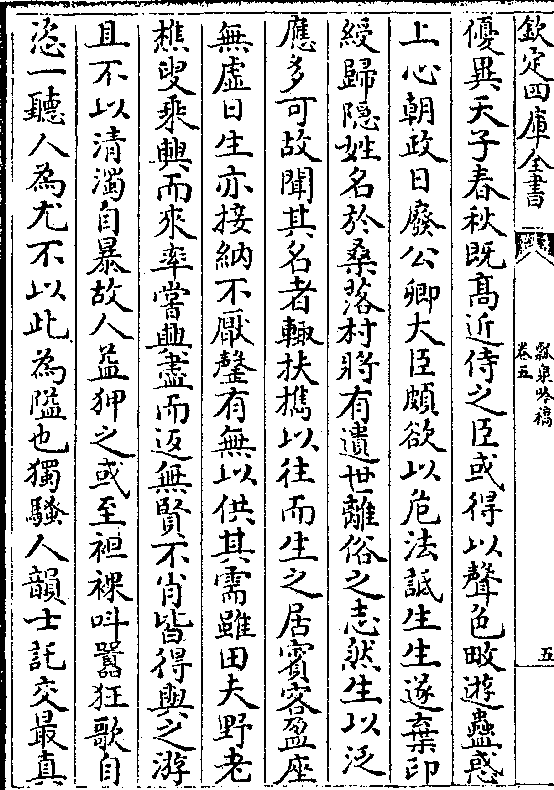 欽定四庫全書
瓢泉吟稿
卷五
五
優異天子春秋既髙近侍之臣或得以聲色畋遊蠱惑
上心朝政日廢公卿大臣頗欲以危法詆生生遂棄印
綬歸隐姓名於桑落村將有遺世離俗之志然生以泛
應多可故聞其名者輙扶攜以往而生之居賓客盈座
無虛日生亦接納不厭罄有無以供其需雖田夫野老
樵叟乘興而來率嘗興盡而返無賢不肖皆得與之游
且不以清濁自暴故人益狎之或至袒裸呌囂狂歌自
恣一聽人為尤不以此為隘也獨騷人韻士託交最真